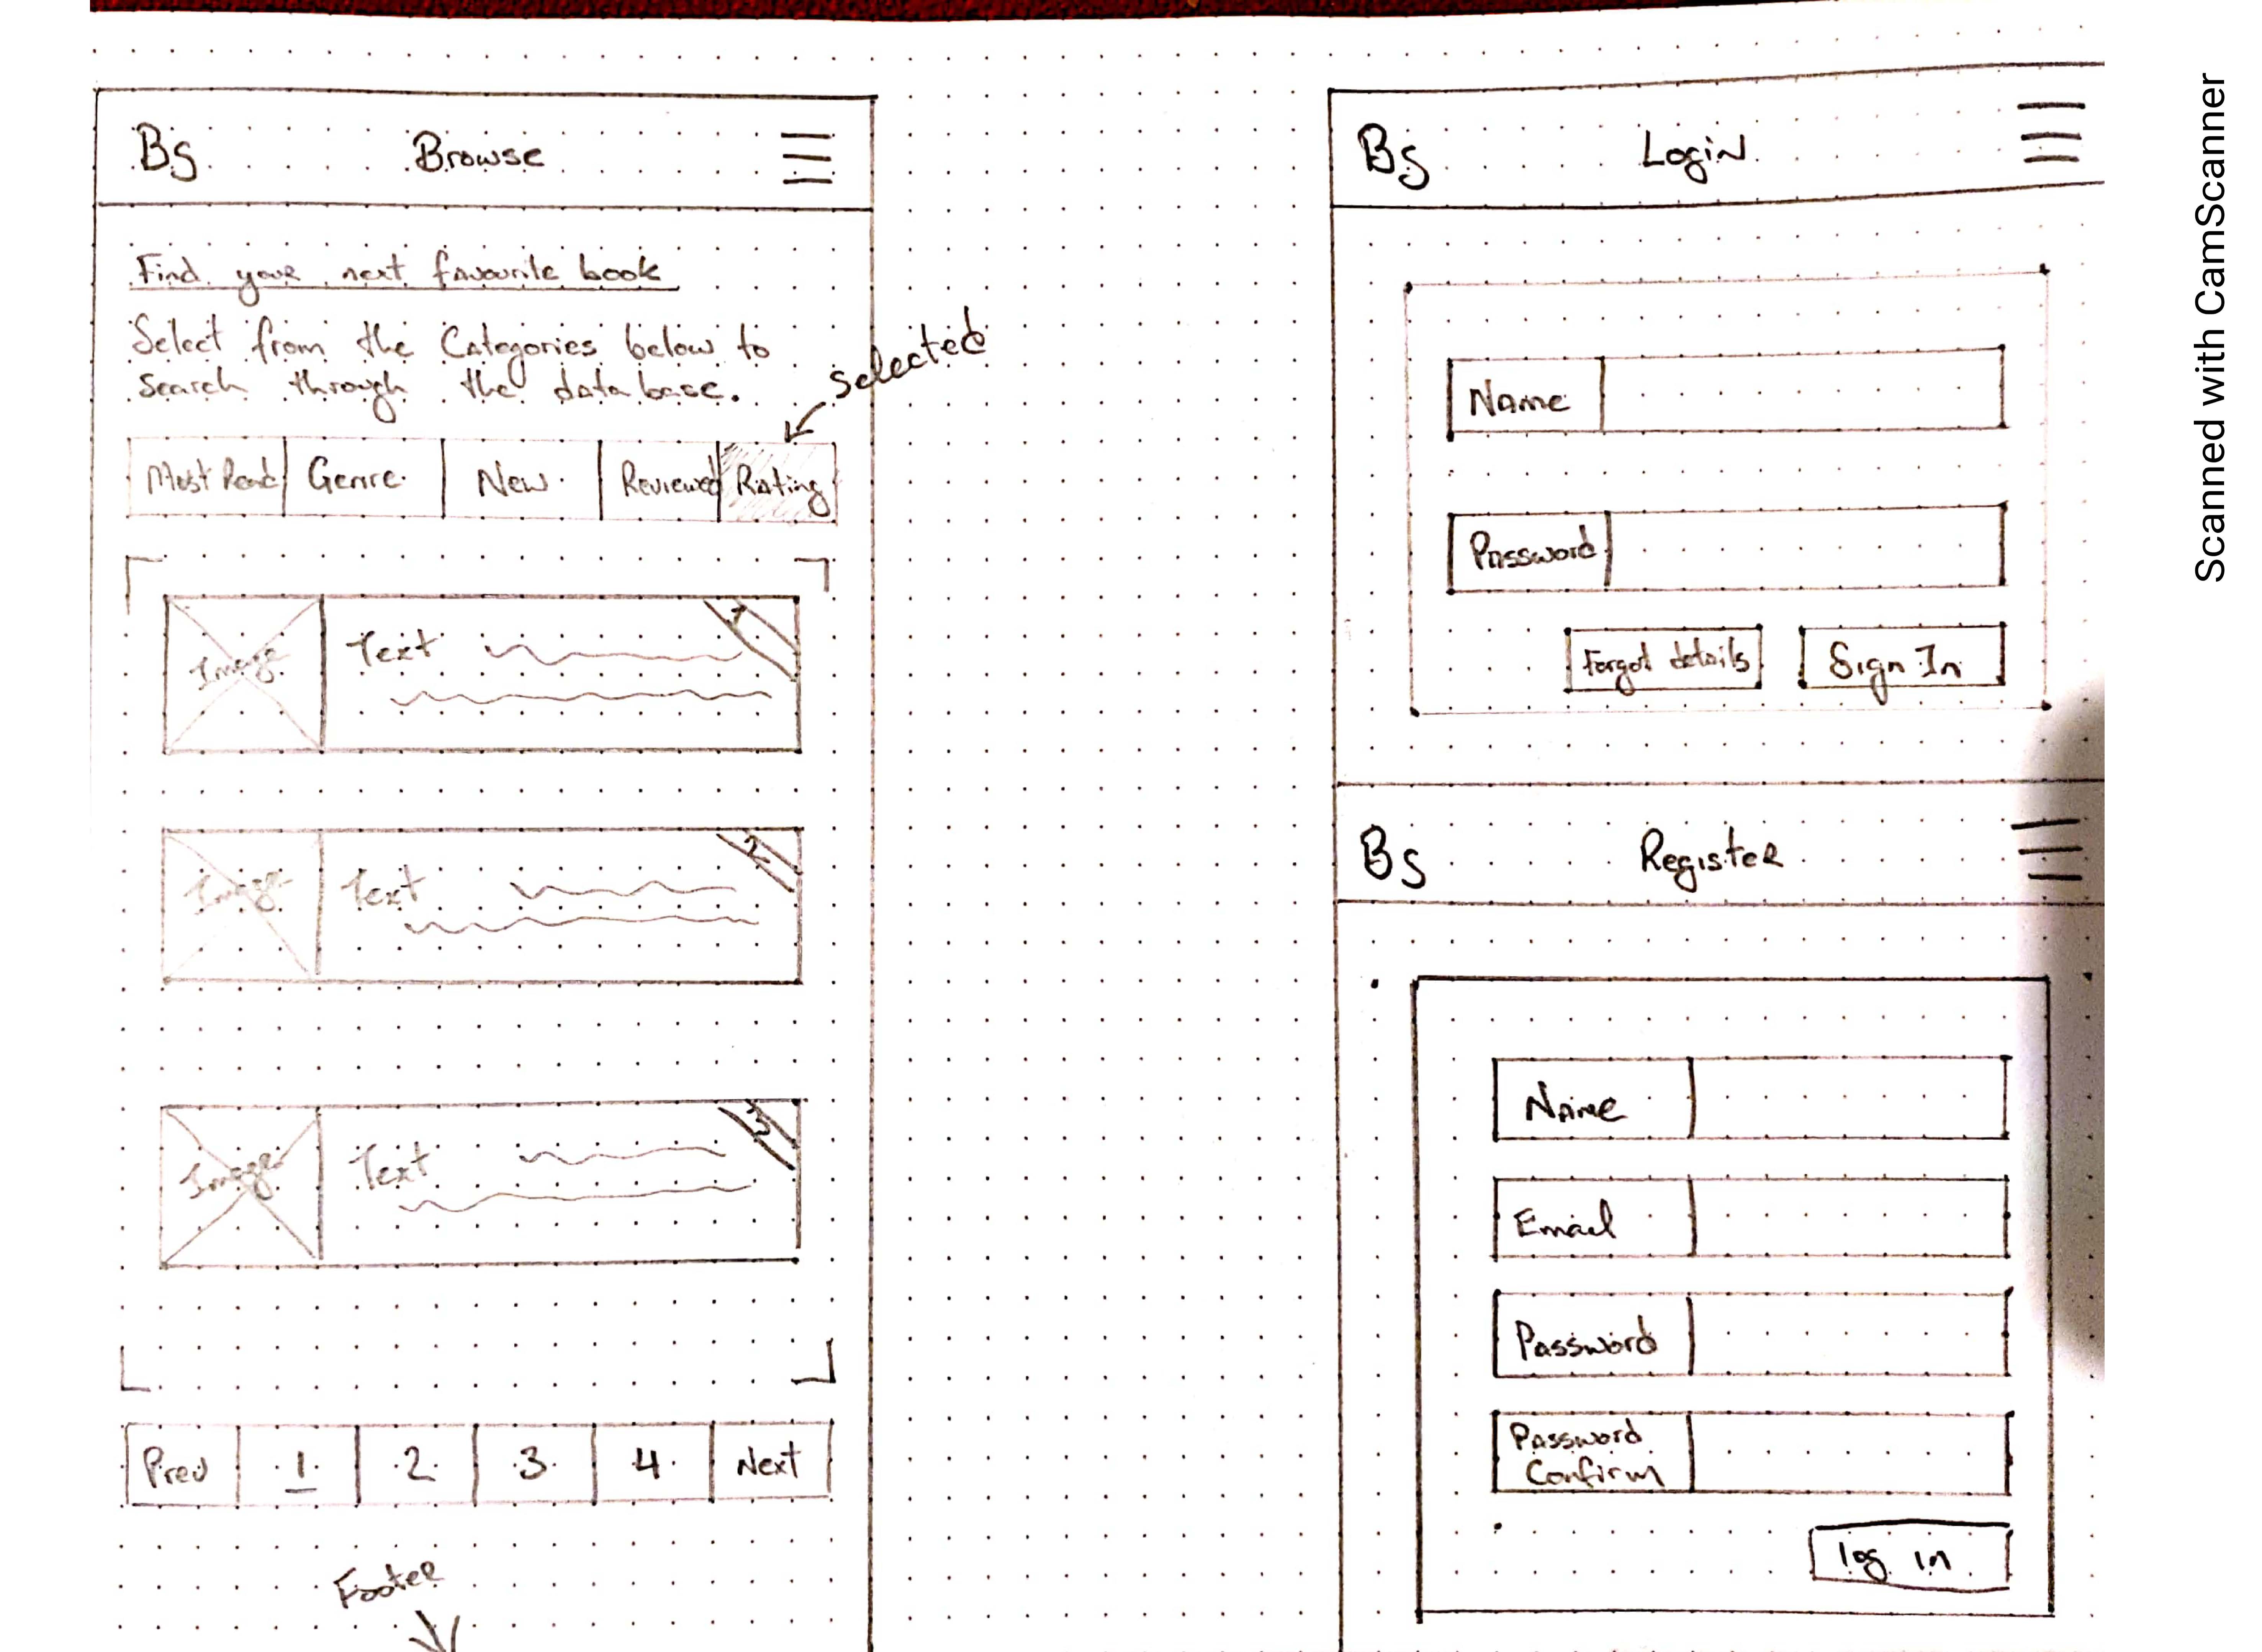 Bs Browse
Find your next favourite book
Select from the Categories below to
search through the database.
selected
Most Read Genre New Reviewed Rating
Image Text 1
Image Text 2
Image Text 3
Prev 1 2 3 4 Next
Footer
Bs Login
Name
Password
Forgot details Sign In
Bs Register
Name
Email
Password
Password
Confirm
log in
Scanned with CamScanner